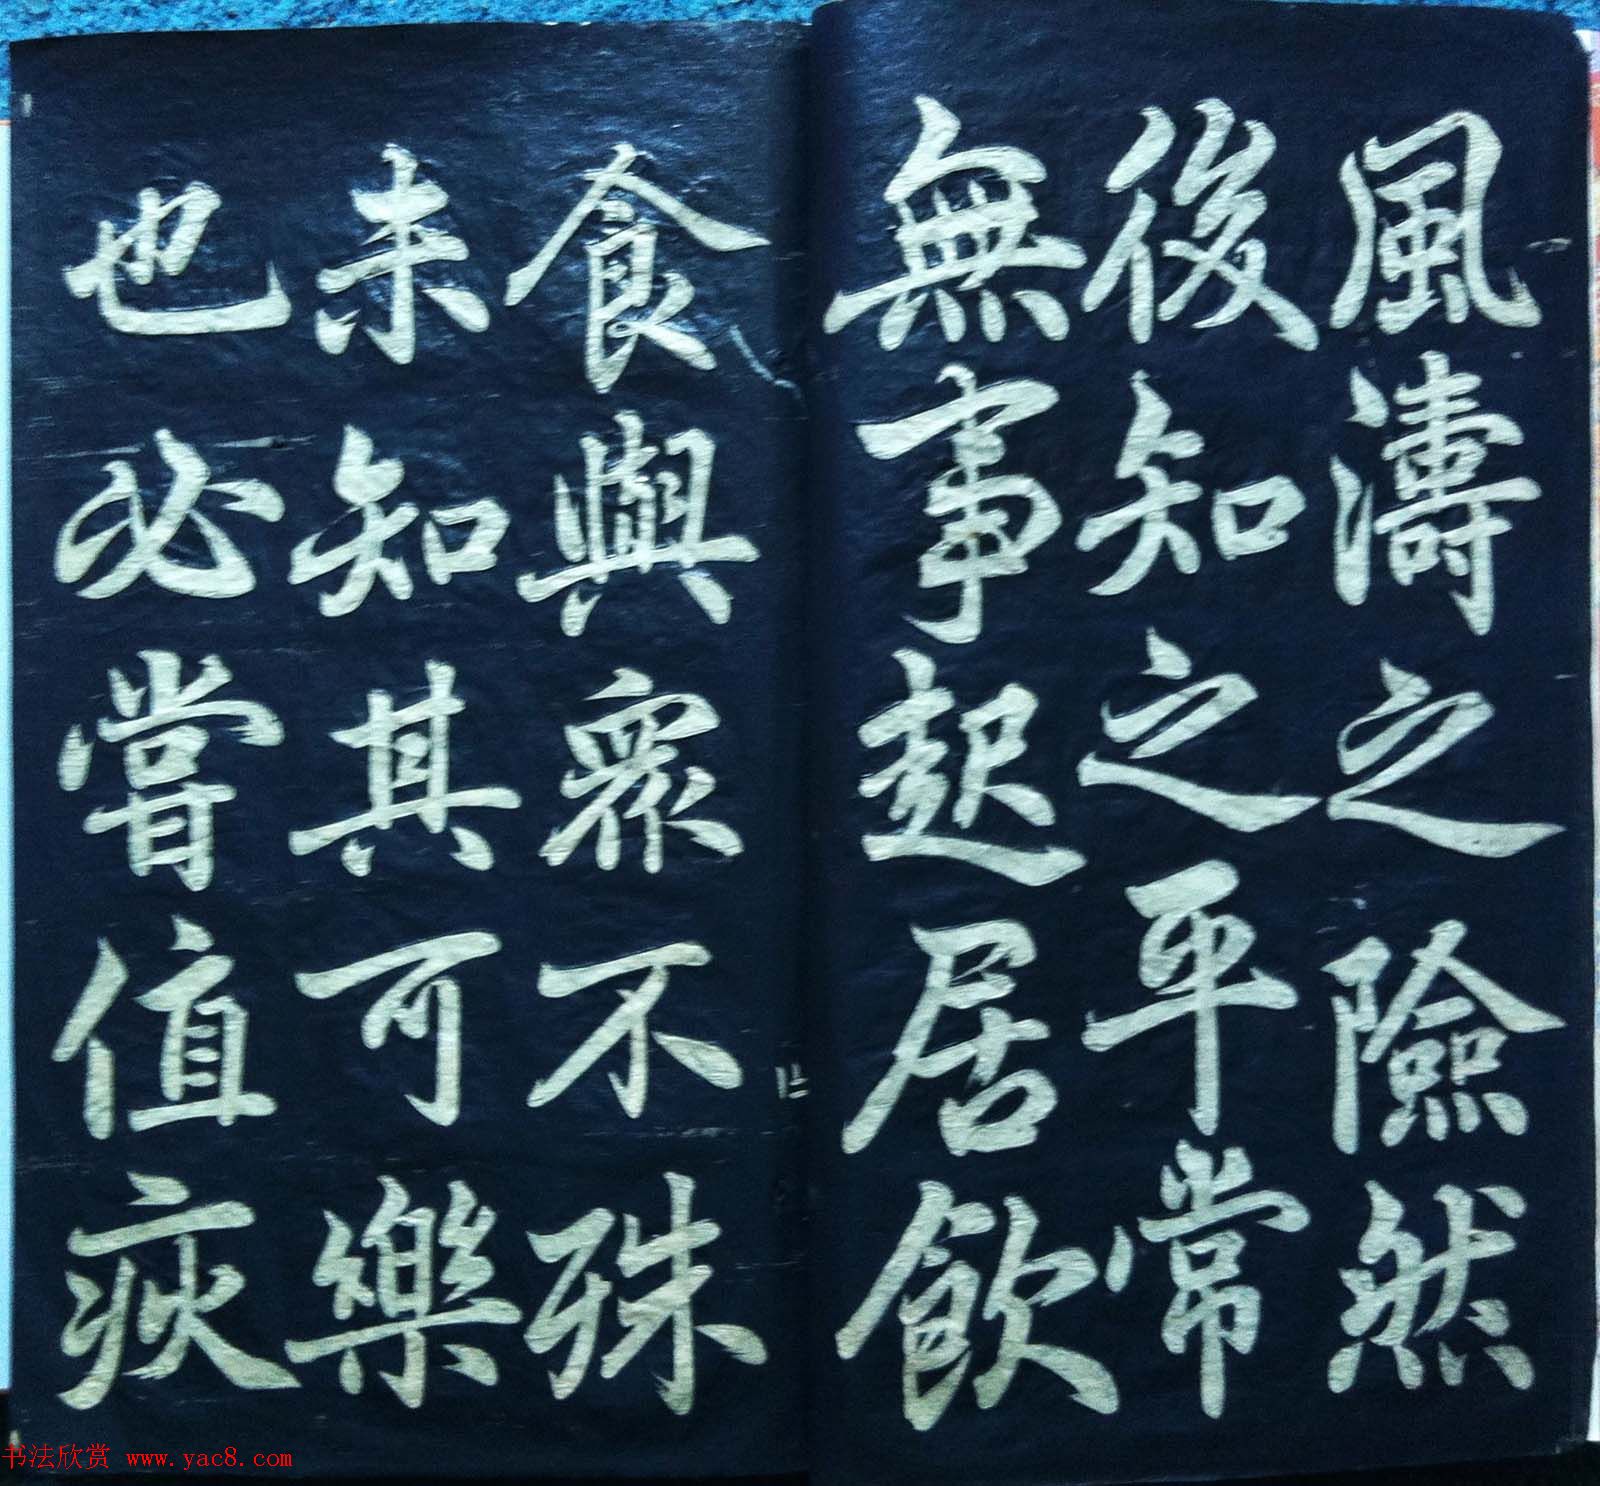 風濤之險然
後知之平常
無事起居飲
食與眾不殊
未知其可樂
也必嘗值疾
书法欣赏 www.yac8.com